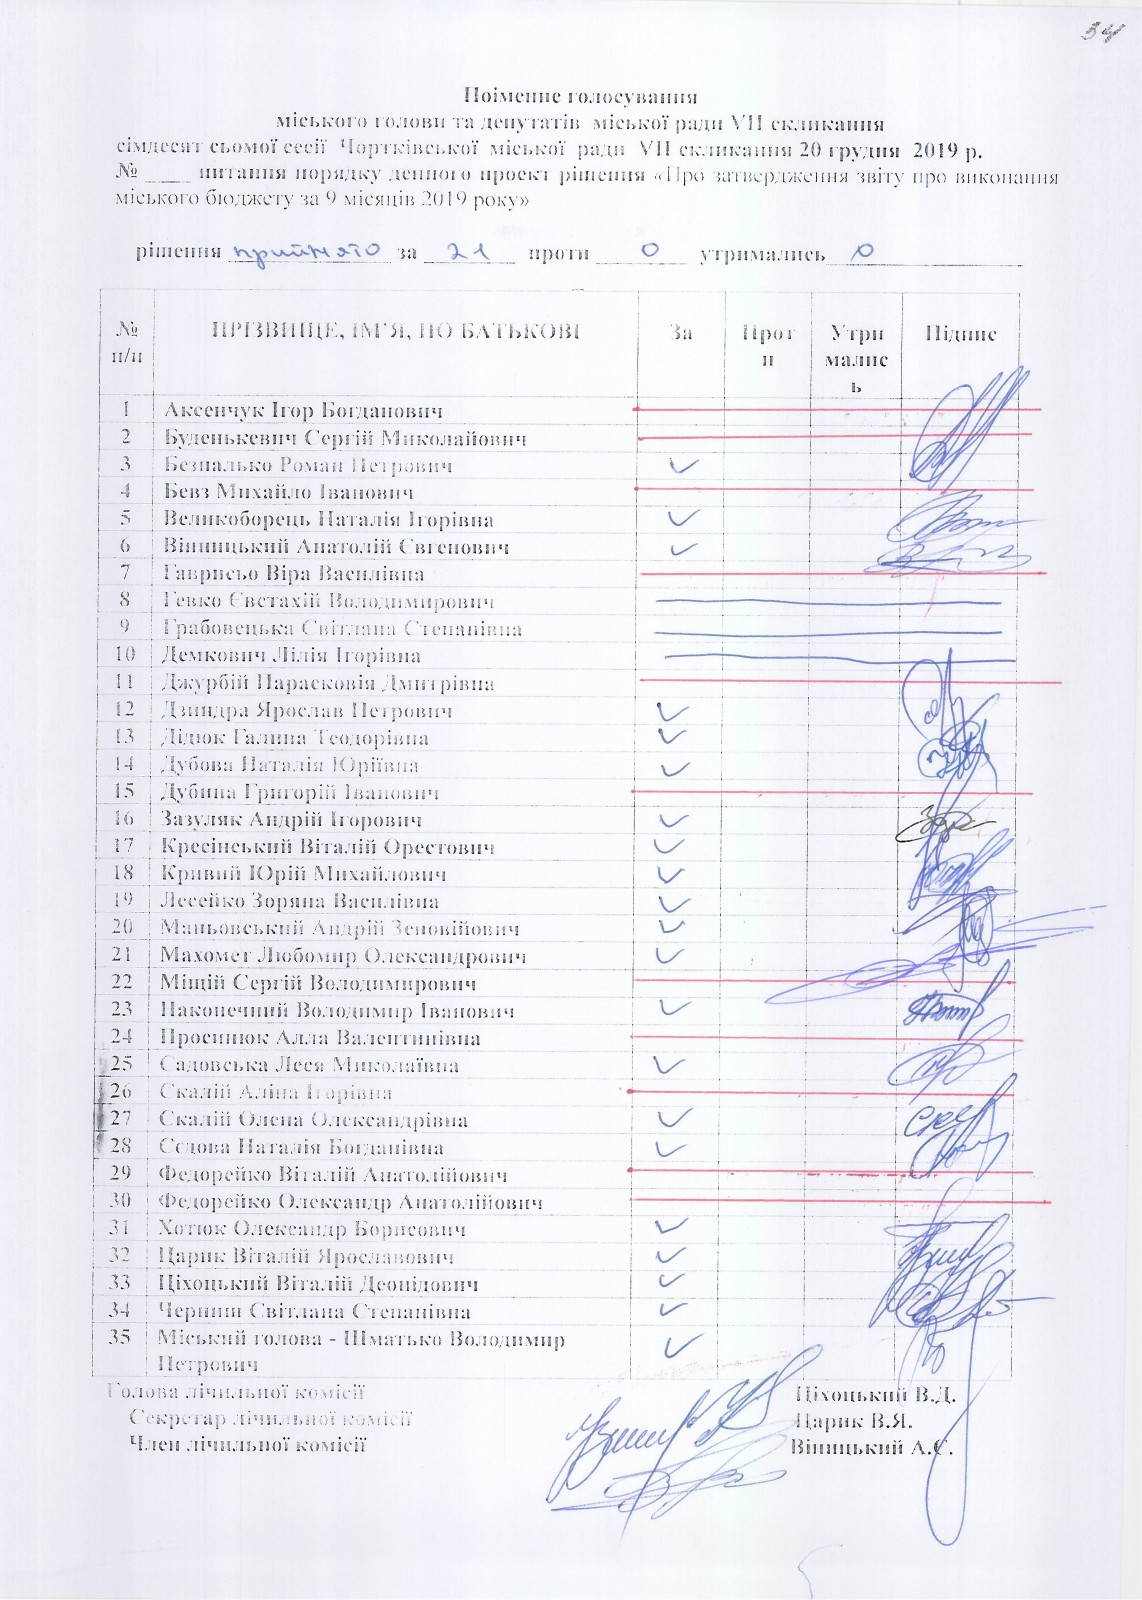 34
Поіменне голосування
міського голови та депутатів міської ради VII скликання
сімдесят сьомої сесії Чортківської міської ради VII скликання 20 грудня 2019 р.
№ ____ питання порядку денного проект рішення «Про затвердження звіту про виконання
міського бюджету за 9 місяців 2019 року»
рішення прийнято за 21 проти 0 утримались 0
№ п/п ПРІЗВИЩЕ, ІМ'Я, ПО БАТЬКОВІ За Проти Утрималисьь Підпис
1 Аксенчук Ігор Богданович
2 Буденькевич Сергій Миколайович
3 Безпалько Роман Петрович ✓
4 Бевз Михайло Іванович
5 Великоборець Наталія Ігорівна ✓
6 Вінницький Анатолій Євгенович ✓
7 Гаврисьо Віра Василівна
8 Гевко Євстахій Володимирович
9 Грабовецька Світлана Степанівна
10 Демкович Лілія Ігорівна
11 Джурбій Парасковія Дмитрівна
12 Дзиндра Ярослав Петрович ✓
13 Дідюк Галина Теодорівна ✓
14 Дубова Наталія Юріївна ✓
15 Дубина Григорій Іванович
16 Зазуляк Андрій Ігорович ✓
17 Кресінський Віталій Орестович ✓
18 Кривий Юрій Михайлович ✓
19 Лесейко Зоряна Василівна ✓
20 Маньовський Андрій Зеновійович ✓
21 Махомет Любомир Олександрович ✓
22 Міщій Сергій Володимирович
23 Наконечний Володимир Іванович ✓
24 Просинюк Алла Валентинівна
25 Садовська Леся Миколаївна ✓
26 Скалій Аліна Ігорівна
27 Скалій Олена Олександрівна ✓
28 Сєдова Наталія Богданівна ✓
29 Федорейко Віталій Анатолійович
30 Федорейко Олександр Анатолійович
31 Хотюк Олександр Борисович ✓
32 Царик Віталій Ярославович ✓
33 Ціхоцький Віталій Леонідович ✓
34 Черниш Світлана Степанівна ✓
35 Міський голова - Шматько Володимир ✓
Петрович
Голова лічильної комісії Ціхоцький В.Л.
Секретар лічильної комісії Царик В.Я.
Член лічильної комісії Вінницький А.Є.